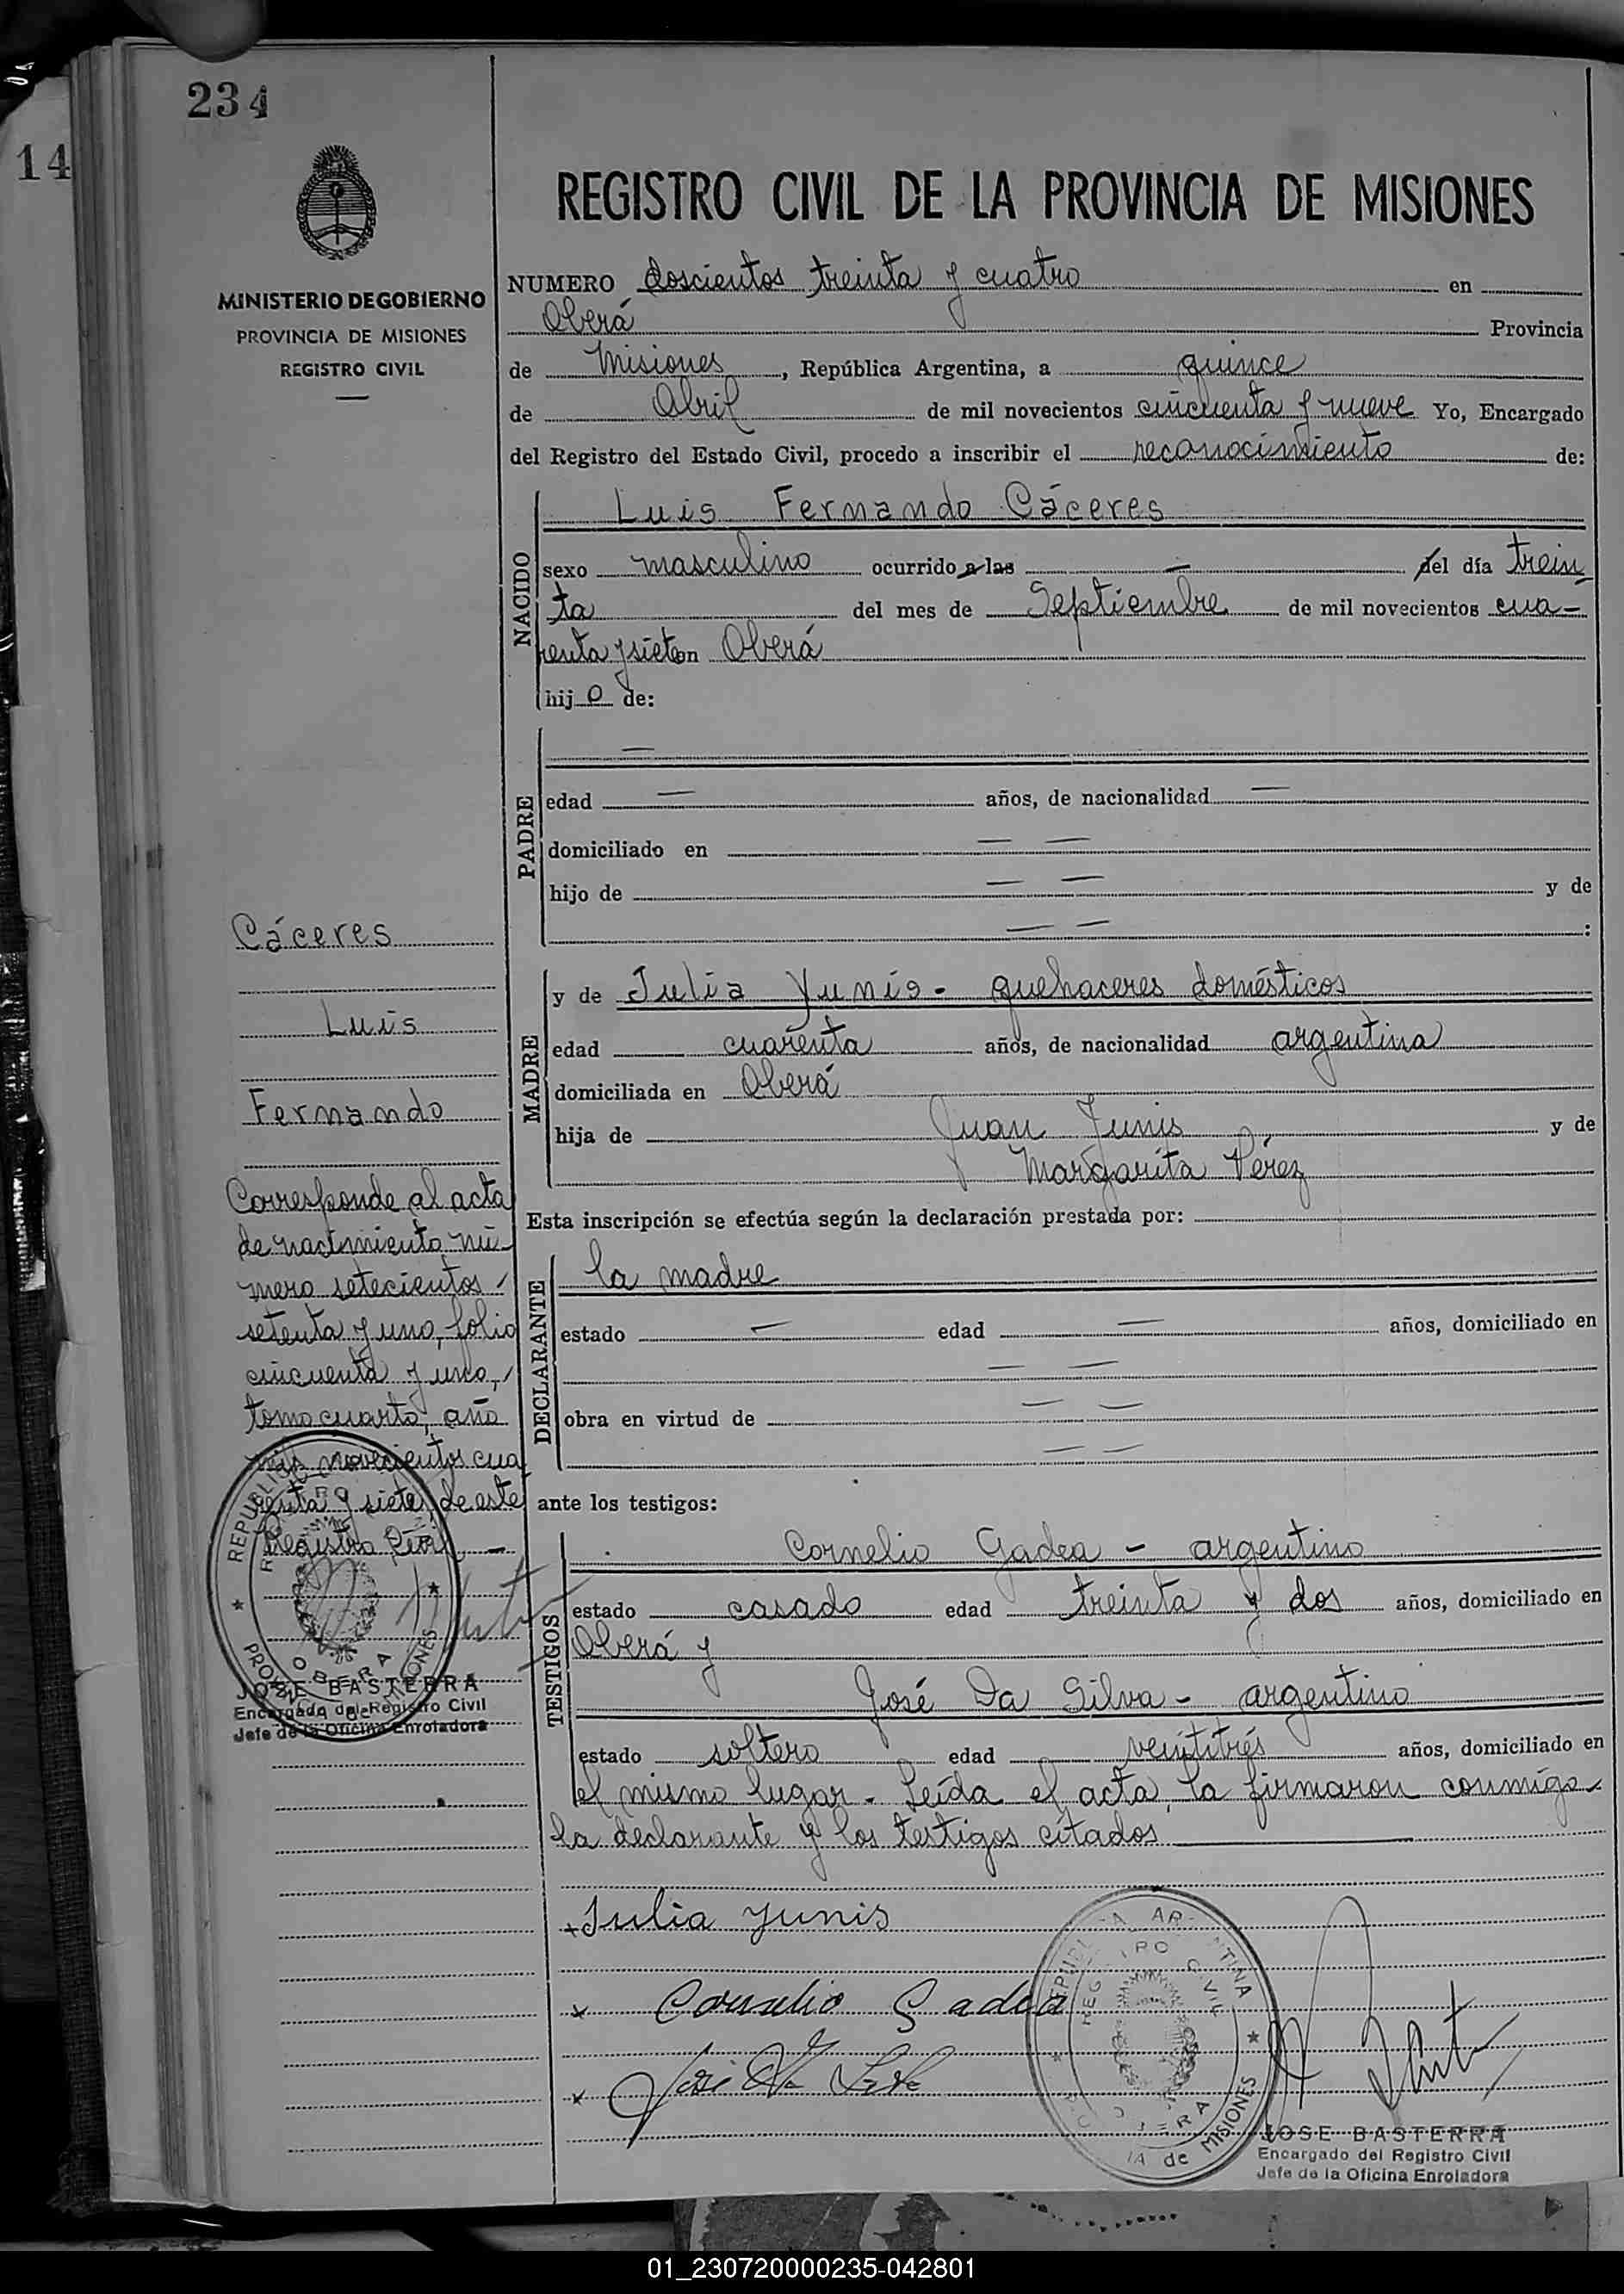 234
14
MINISTERIO DE GOBIERNO
PROVINCIA DE MISIONES
REGISTRO CIVIL
REGISTRO CIVIL DE LA PROVINCIA DE MISIONES
NUMERO doscientos treinta y cuatro en
Oberá Provincia
de Misiones, República Argentina, a quince
de Abril de mil novecientos cincuenta y nueve Yo, Encargado
del Registro del Estado Civil, procedo a inscribir el reconocimiento de:
NACIDO
Luis Fernando Cáceres
sexo masculino ocurrido a las — del día trein
ta del mes de Septiembre de mil novecientos cua-
renta y siete en Oberá
hijo de:
PADRE
—
edad — años, de nacionalidad —
domiciliado en — —
hijo de — — y de
— — :
MADRE
y de Julia Yunis - quehaceres domésticos
edad cuarenta años, de nacionalidad argentina
domiciliada en Oberá
hija de Juan Yunis y de
Margarita Pérez
Esta inscripción se efectúa según la declaración prestada por:
DECLARANTE
la madre
estado — edad — años, domiciliado en
— —
obra en virtud de — —
— —
ante los testigos:
TESTIGOS
Cornelio Gadea - argentino
estado casado edad treinta y dos años, domiciliado en
Oberá y
José Da Silva - argentino
estado soltero edad veintitrés años, domiciliado en
el mismo lugar. Leída el acta, la firmaron conmigo
la declarante y los testigos citados
Cáceres
Luis
Fernando
Corresponde al acta
de nacimiento nú-
mero setecientos
setenta y uno, folio
cincuenta y uno,
tomo cuarto, año
mil novecientos cua
renta y siete, de este
Registro Civil —
JOSE BASTERRA
Encargado del Registro Civil
Jefe de la Oficina Enroladora
OBERA
MISIONES
+ Julia Yunis
x Cornelio Gadea
x José Da Silva
REGISTRO CIVIL
de MISIONES
JOSE BASTERRA
Encargado del Registro Civil
Jefe de la Oficina Enroladora
01_230720000235-042801